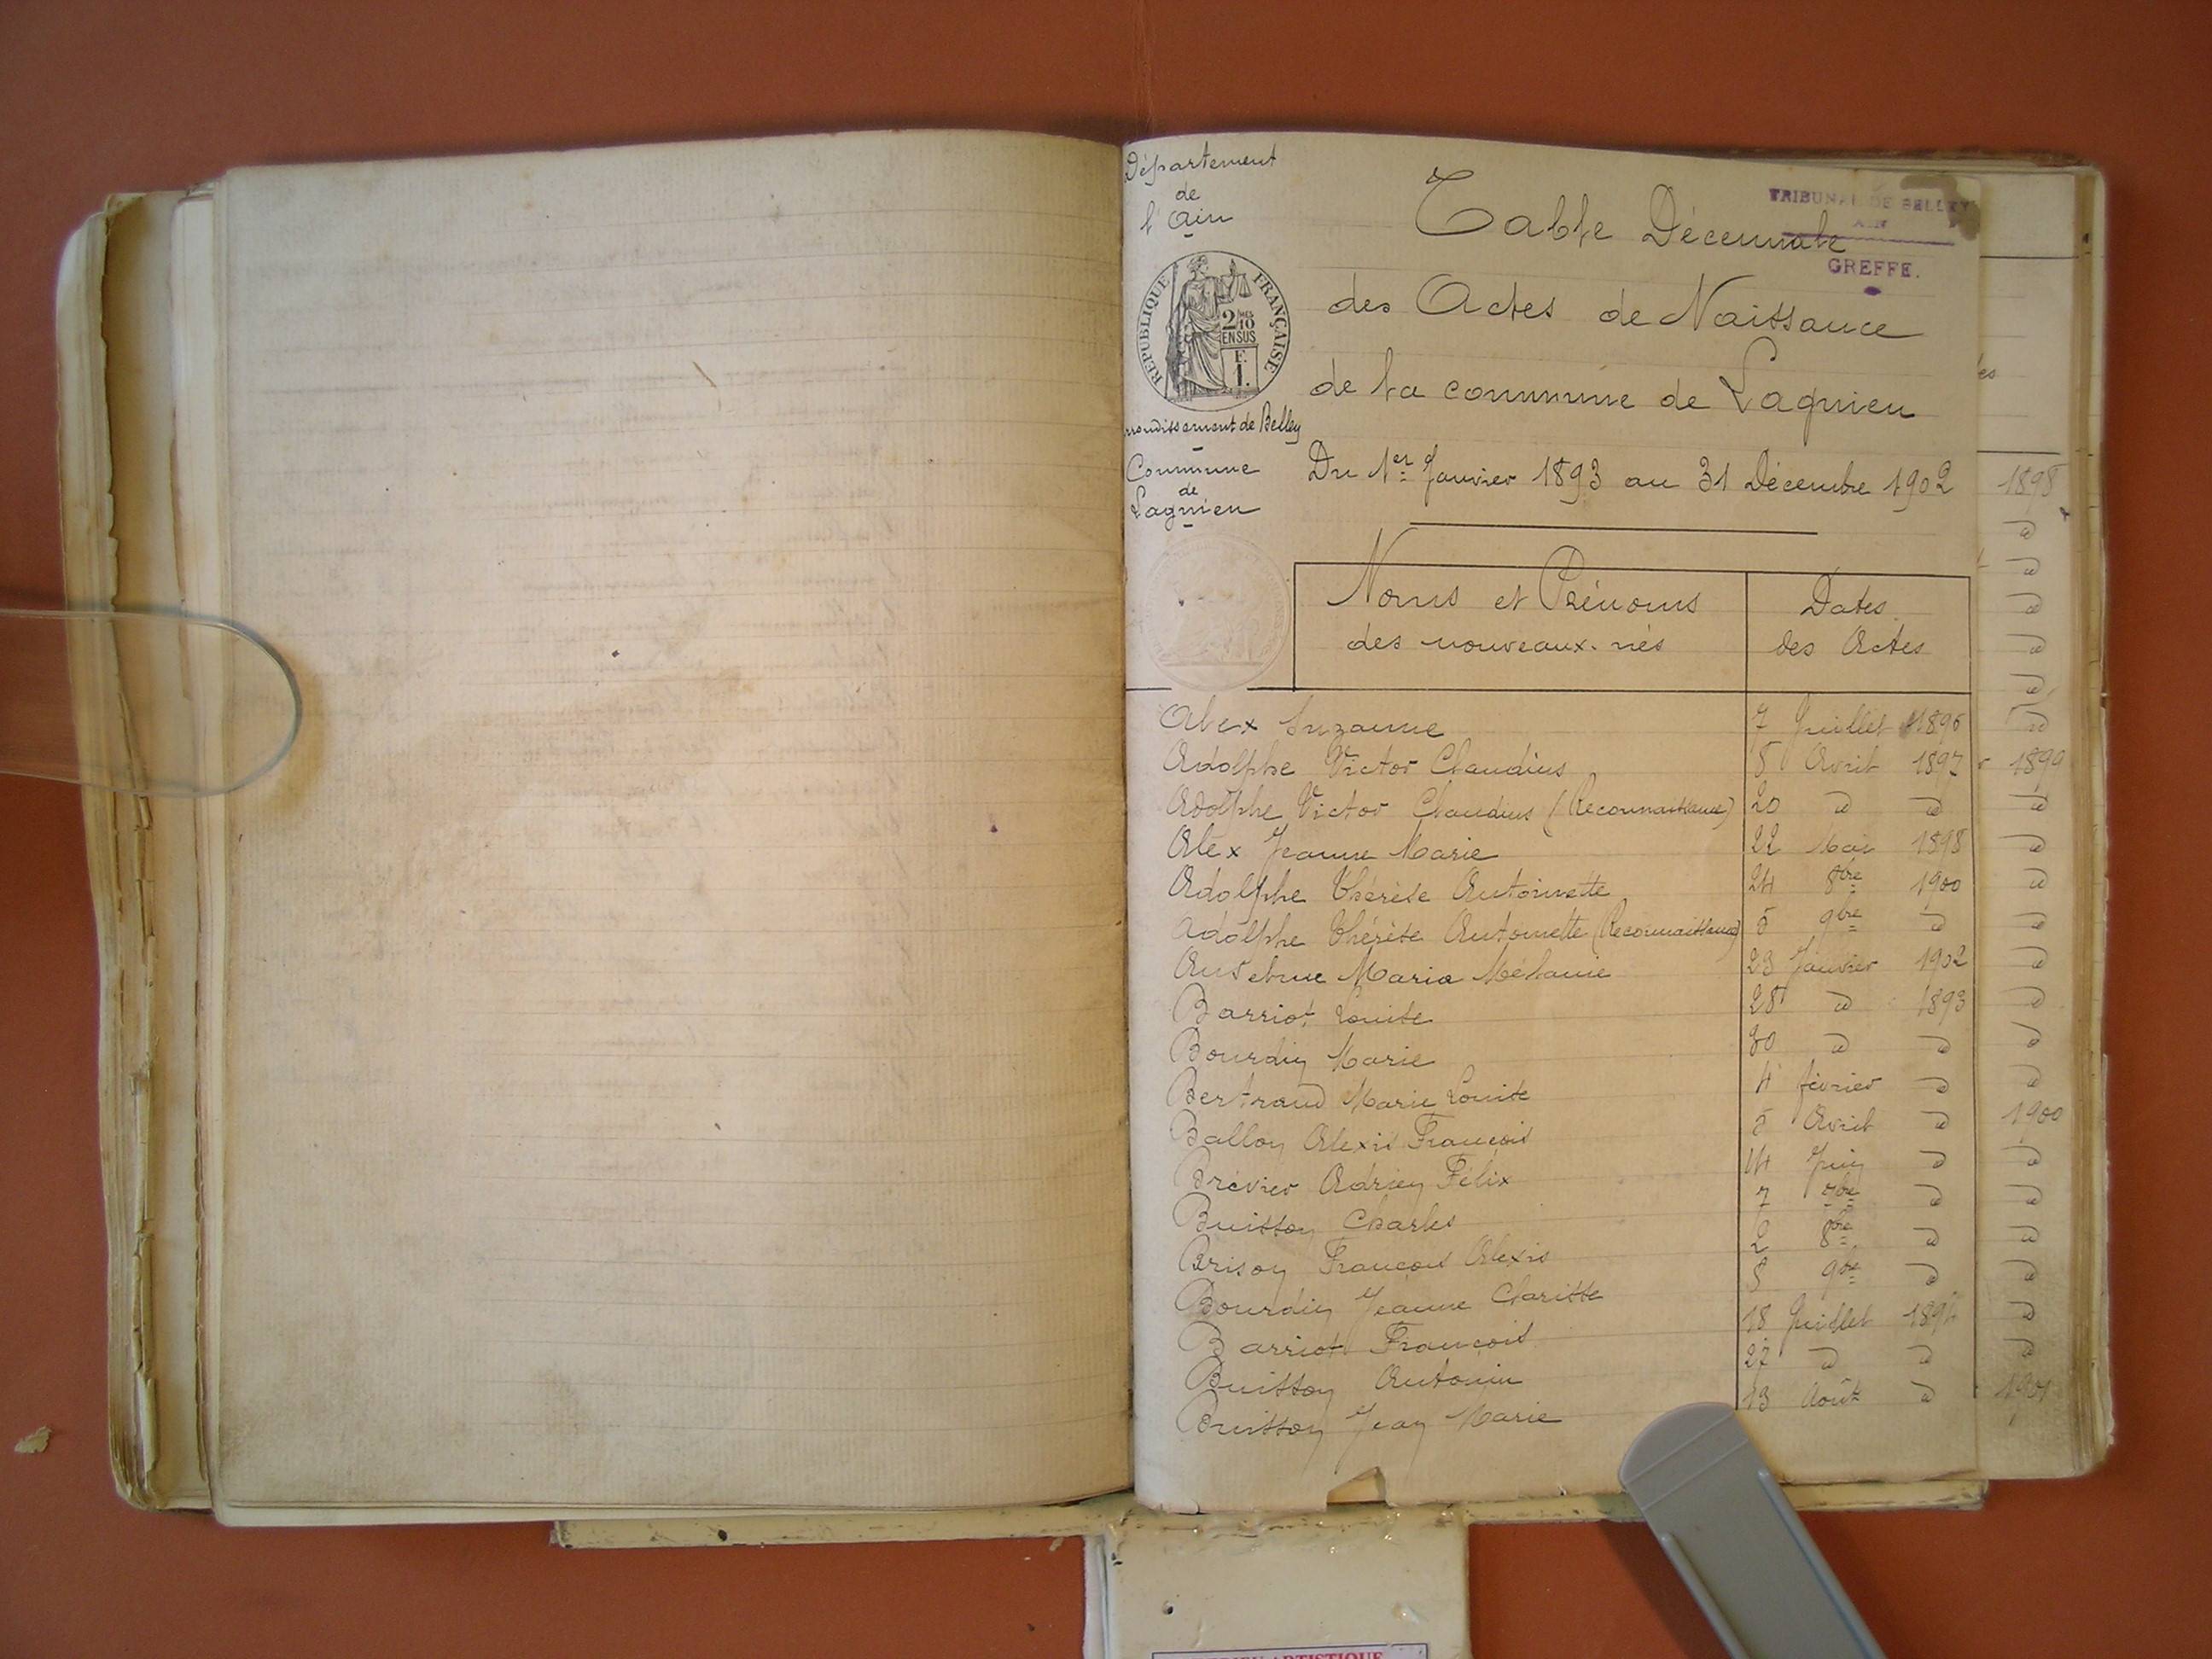 Département
de
l'Ain
TRIBUNAL DE BELLEY
AIN
GREFFE.
Table Décennale
des Actes de Naissance
de la commune de Lagnieu
Du 1er Janvier 1893 au 31 Décembre 1902
RÉPUBLIQUE FRANÇAISE
2/10 MES
EN SUS
F.
1.
Arrondissement de Belley
Commune
de
Lagnieu
Noms et Prénoms des nouveaux-nés
Dates des Actes
Alex Suzanne 7 Juillet 1896
Adolphe Victor Claudius 8 Avril 1897
Adolphe Victor Claudius (Reconnaissance) 20 d d
Alex Jeanne Marie 22 Mai 1898
Adolphe Thérèse Antoinette 24 8bre 1900
Adolphe Thérèse Antoinette (Reconnaissance) 5 9bre d
Anselme Maria Mélanie 23 Janvier 1902
Barriot Louise 28 d 1893
Bourdin Marie 30 d d
Bertrand Marie Louise 4 février d
Ballon Alexis François 5 Avril d
Brévier Adrien Félix 14 Juin d
Buisson Charles 7 7bre d
Brison François Alexis 2 8bre d
Bourdin Jeanne Clarisse 8 9bre d
Barriot François 18 Juillet
Buisson Antonin 27 d d
Buisson Jean Marie 13 Août d
es
1898
d
d
d
d
d
d
1899
d
d
d
d
d
d
d
d
1900
d
d
d
d
d
d
1901
ARTISTIQUE